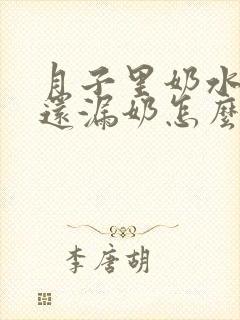 月子里奶水
還漏奶怎麼
李唐胡